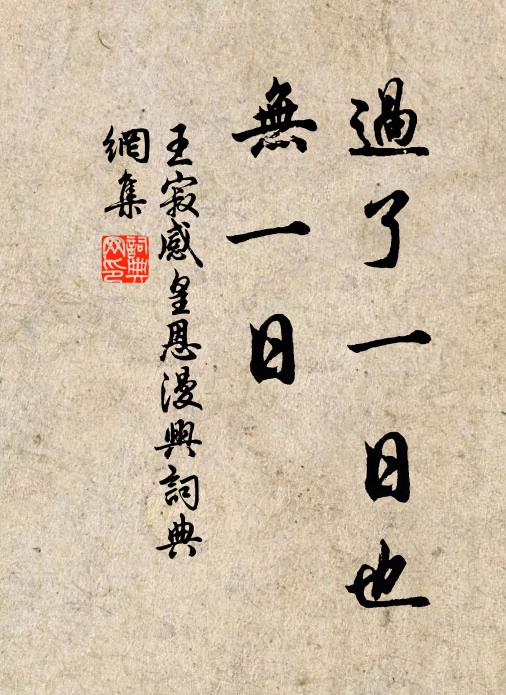 過了一日也
無一日
王寂感皇恩漫興詞典
網集
詞典
网印